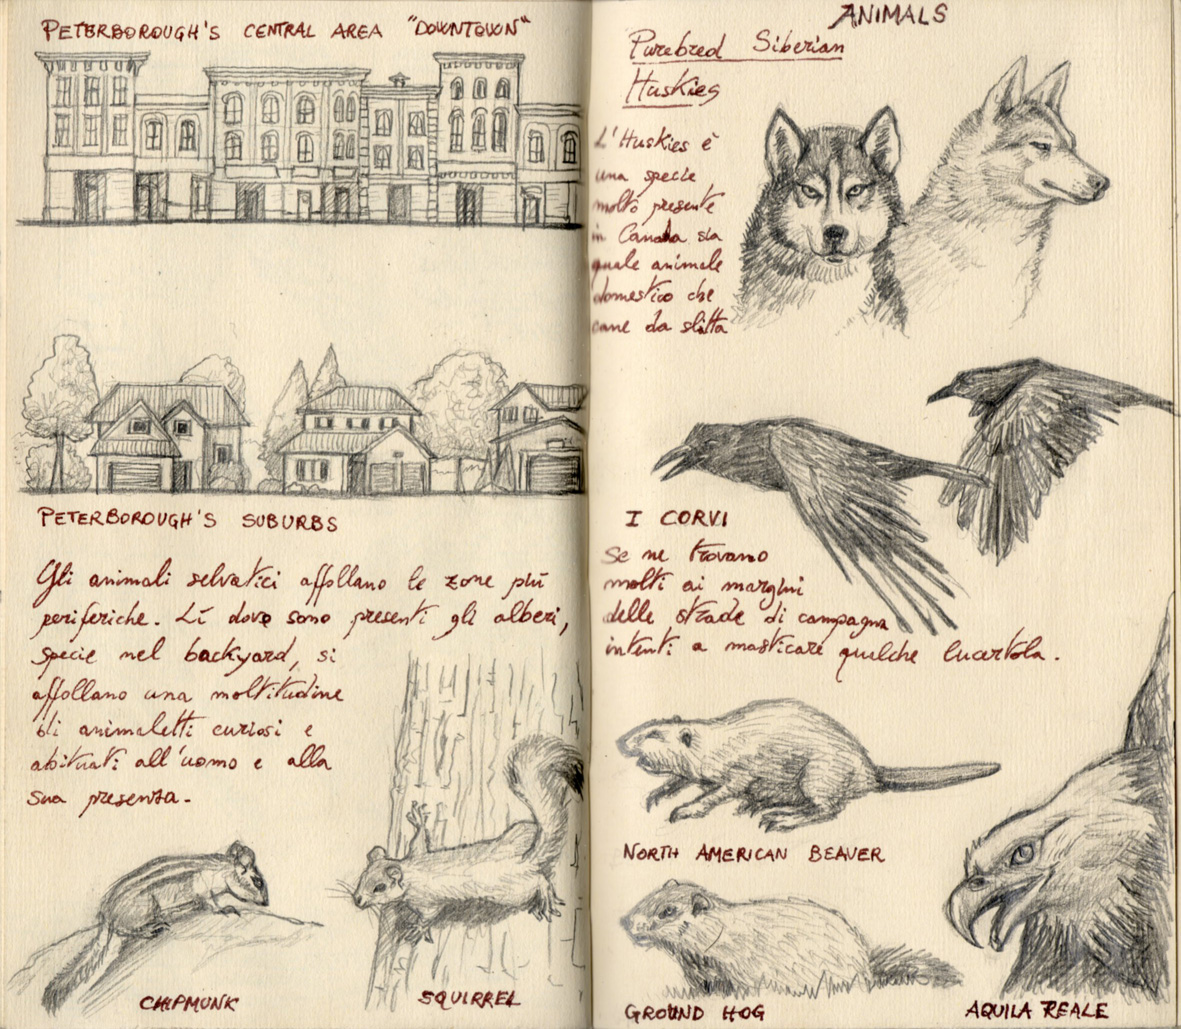 PETERBOROUGH'S CENTRAL AREA "DOWNTOWN"
PETERBOROUGH'S SUBURBS
Gli animali selvatici affollano le zone più
periferiche. Lì dove sono presenti gli alberi,
specie nel backyard, si
affollano una moltitudine
di animaletti curiosi e
abituati all'uomo e alla
sua presenza.
CHIPMUNK
SQUIRREL
ANIMALS
Purebred Siberian
Huskies
L'Huskies è
una specie
molto presente
in Canada sia
quale animale
domestico che
cane da slitta
I CORVI
Se ne trovano
molti ai margini
delle strade di campagna
intenti a masticare qualche lucertola.
NORTH AMERICAN BEAVER
GROUND HOG
AQUILA REALE